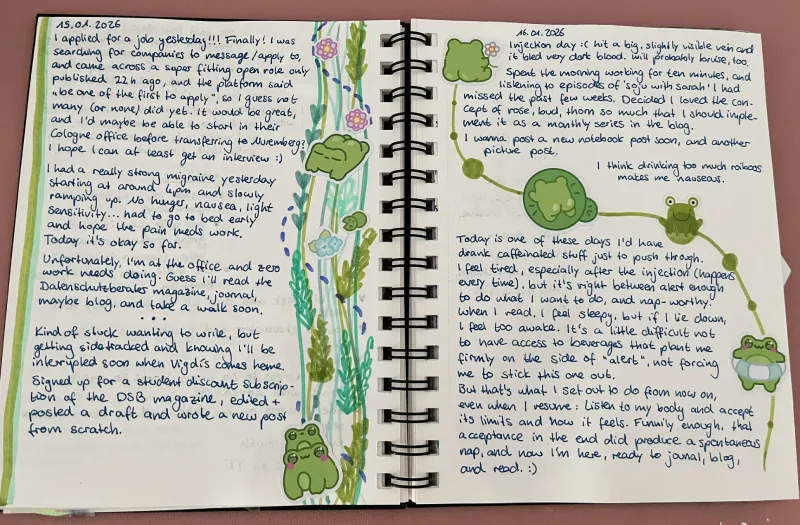 15.01.2026
I applied for a job yesterday!!! Finally! I was
searching for companies to message/apply to,
and came across a super fitting open role only
published 22h ago, and the platform said
"be one of the first to apply", so I guess not
many (or none) did yet. It would be great,
and I'd maybe be able to start in their
Cologne office before transferring to Nuremberg?
I hope I can at least get an interview :)
I had a really strong migraine yesterday
starting at around 4pm and slowly
ramping up. No hunger, nausea, light
sensitivity... had to go to bed early
and hope the pain meds work.
Today it's okay so far.
Unfortunately, I'm at the office and zero
work needs doing. Guess I'll read the
Datenschutzberater magazine, journal,
maybe blog, and take a walk soon.
....
Kind of stuck wanting to write, but
getting sidetracked and knowing I'll be
interrupted soon when Vigdis comes home.
Signed up for a student discount subscrip-
tion of the DSB magazine, edited +
posted a draft and wrote a new post
from scratch.
16.01.2026
Injection day :( hit a big, slightly visible vein and
it bled very dark blood. will probably bruise, too.
Spent the morning working for ten minutes, and
listening to episodes of 'soju with sarah' I had
missed the past few weeks. Decided I loved the con-
cept of rose, bud, thorn so much that I should imple-
ment it as a monthly series in the blog.
I wanna post a new notebook post soon, and another
picture post.
I think drinking too much rooibos
makes me nauseous.
Today is one of these days I'd have
drank caffeinated stuff just to push through.
I feel tired, especially after the injection (happens
every time), but it's right between alert enough
to do what I want to do, and nap-worthy.
When I read, I feel sleepy, but if I lie down,
I feel too awake. It's a little difficult not
to have access to beverages that plant me
firmly on the side of "alert", not forcing
me to stick this one out.
But that's what I set out to do from now on,
even when I resume: Listen to my body and accept
its limits and how it feels. Funnily enough, that
acceptance in the end did produce a spontaneous
nap, and now I'm here, ready to journal, blog,
and read. :)